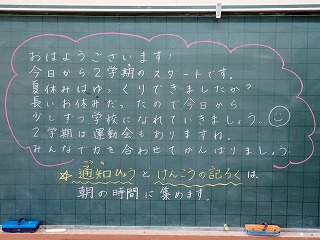 おはようございます!
今日から2学期のスタートです。
夏休みはゆっくりできましたか?
長いお休みだったので今日から
少しずつ学校になれていきましょう…
2学期は運動会もありますね。
みんなで力を合わせてがんばりましょう…
☆通知ひょうとけんこうの記ろくは
朝の時間に集めます。